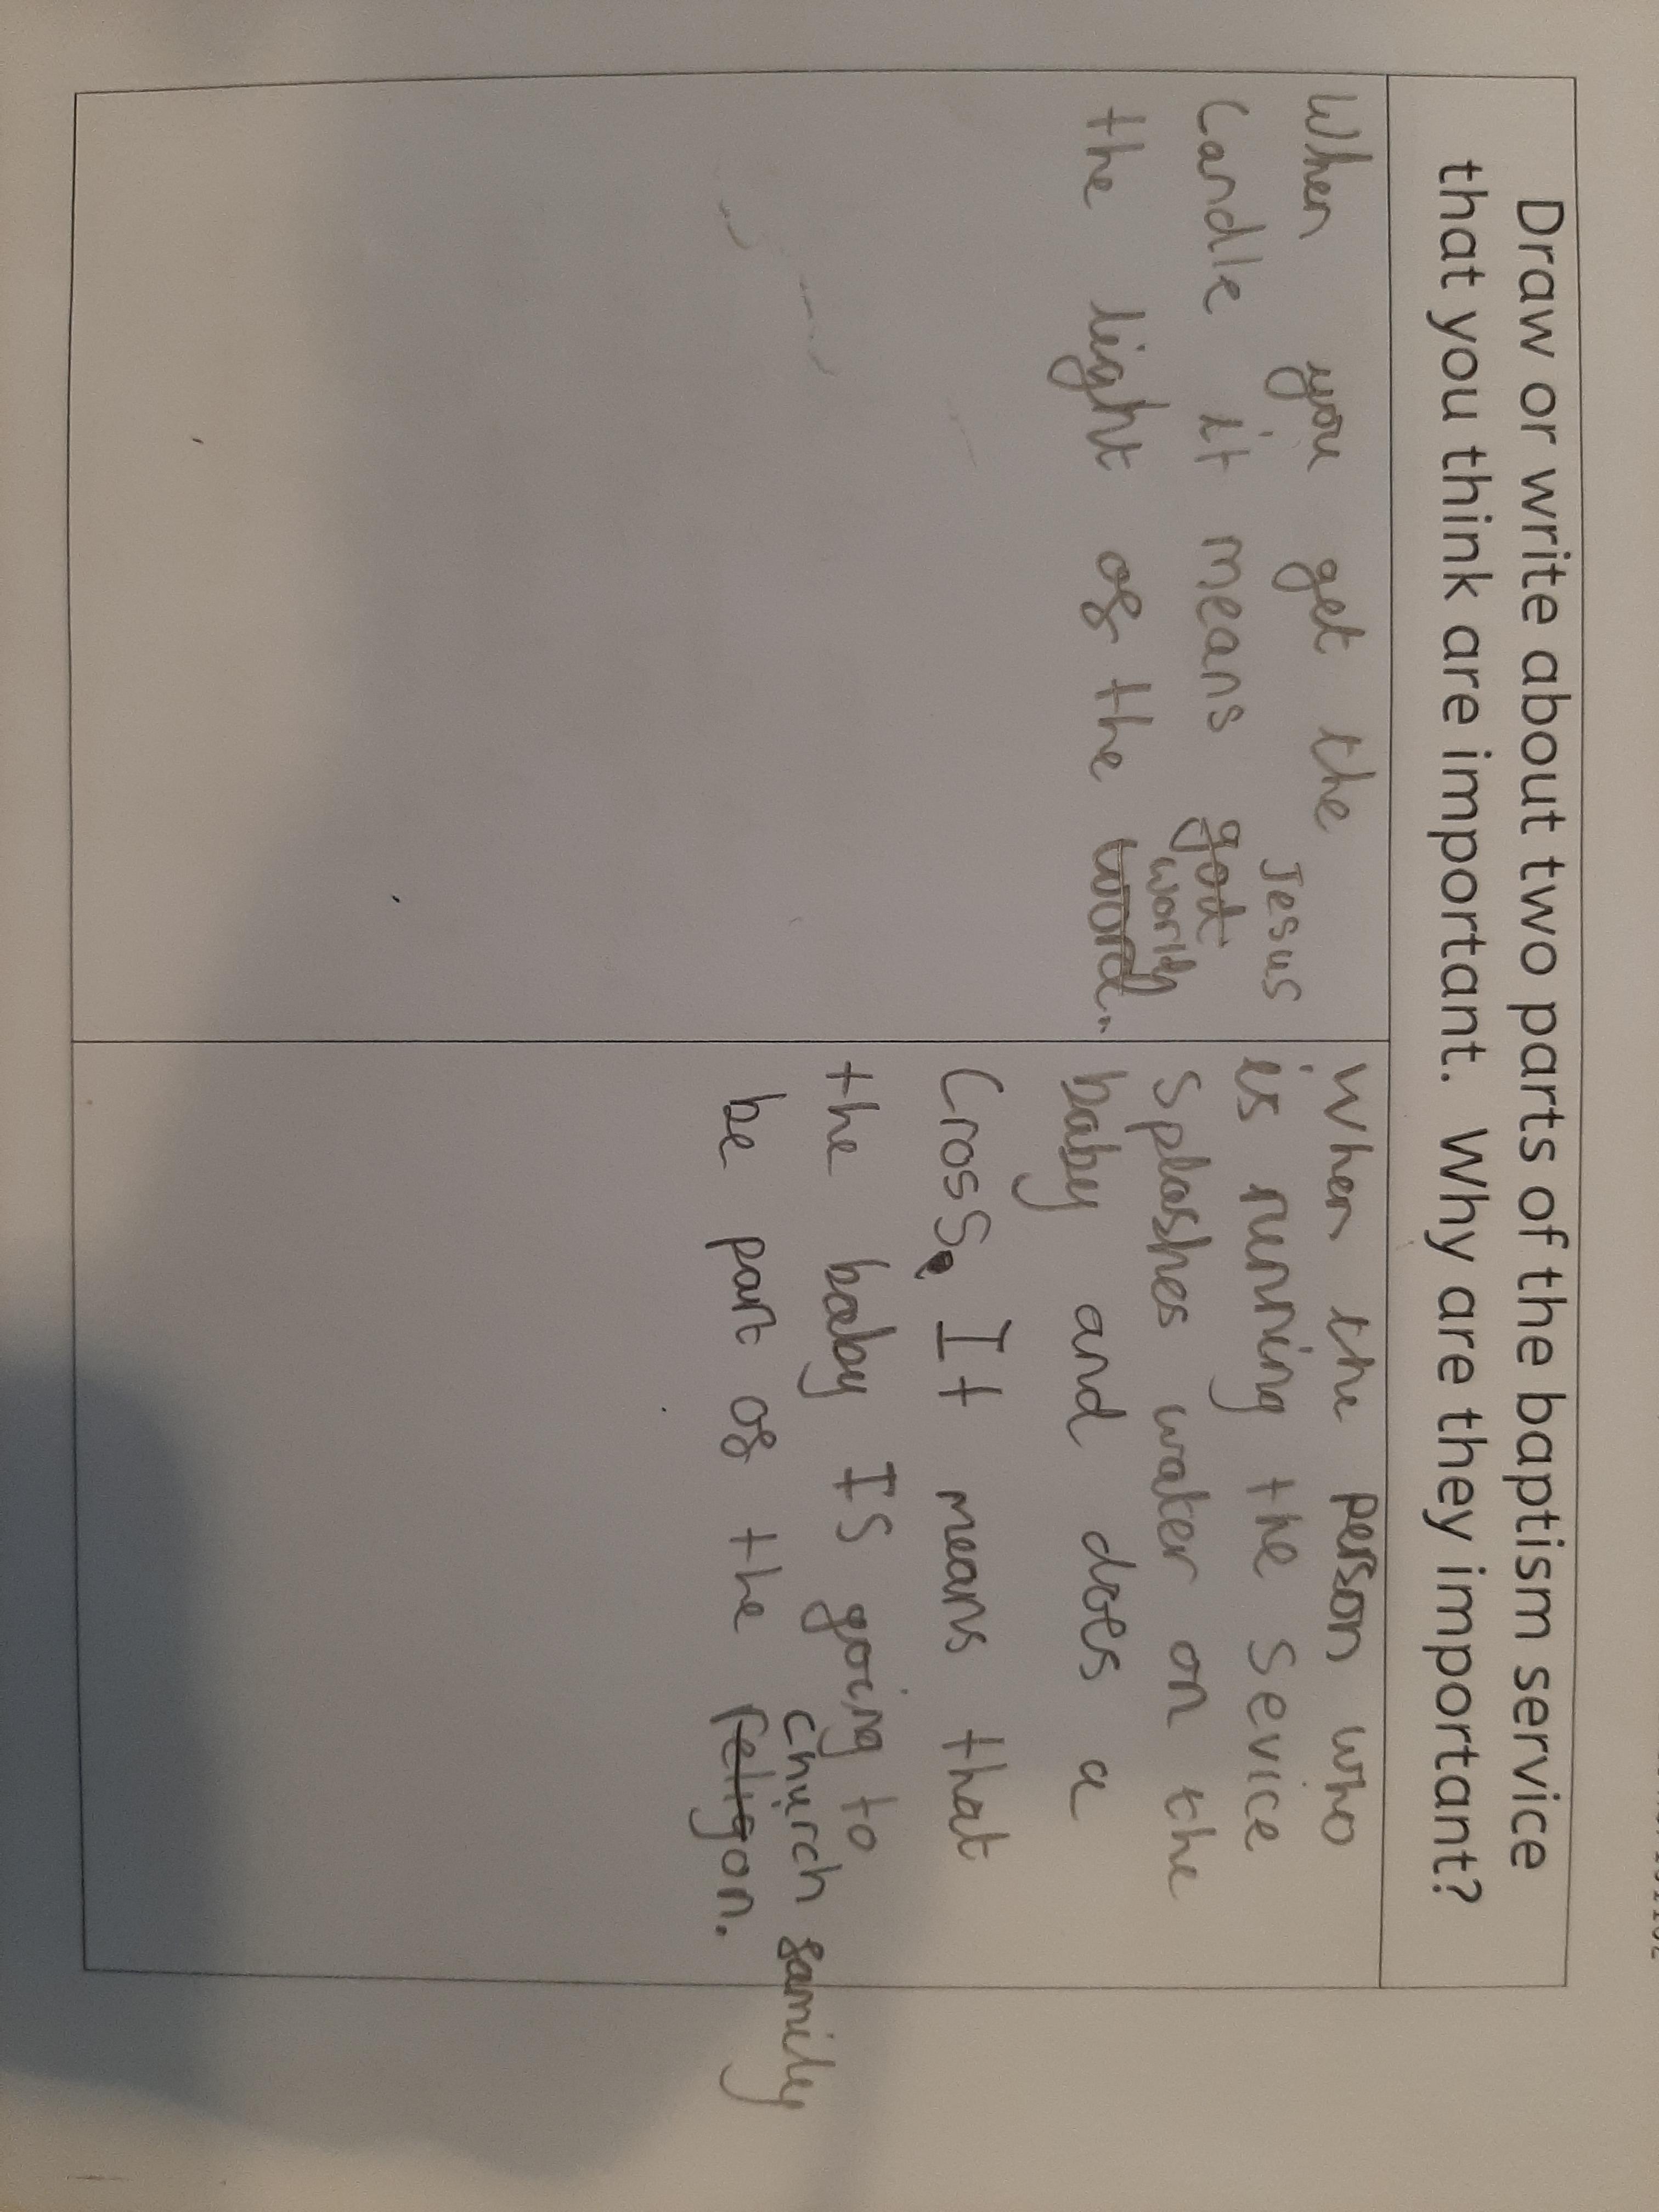 Draw or write about two parts of the baptism service
that you think are important. Why are they important?
When you get the
Jesus
Candle it means got
world
the light of the word.
When the person who
is running the sevice
splashes water on the
baby and does a
Cross. It means that
the baby IS going to
church family
be part of the religon.